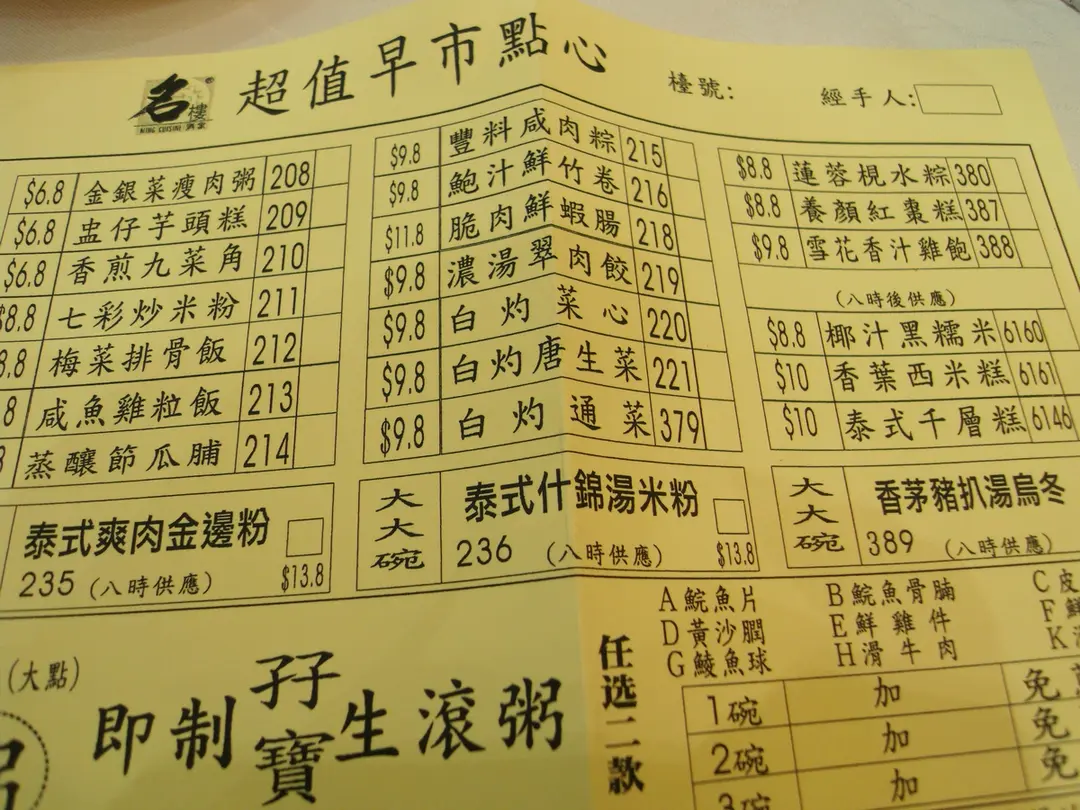 名樓
超值早市點心
檯號:
經手人:
$6.8 金銀菜瘦肉粥 208
$6.8 盅仔芋頭糕 209
$6.8 香煎九菜角 210
$8.8 七彩炒米粉 211
8.8 梅菜排骨飯 212
8 咸魚雞粒飯 213
蒸釀節瓜脯 214
$9.8 豐料咸肉粽 215
$9.8 鮑汁鮮竹卷 216
$11.8 脆肉鮮蝦腸 218
$9.8 濃湯翠肉餃 219
$9.8 白灼菜心 220
$9.8 白灼唐生菜 221
$9.8 白灼通菜 379
$8.8 蓮蓉梘水粽 380
$8.8 養顏紅棗糕 387
$9.8 雪花香汁雞飽 388
(八時後供應)
$8.8 椰汁黑糯米 6160
$10 香葉西米糕 6161
$10 泰式千層糕 6146
泰式爽肉金邊粉
235 (八時供應) $13.8
大大碗
泰式什錦湯米粉
236 (八時供應) $13.8
大大碗
香茅豬扒湯烏冬
389 (八時供應)
(大點)
即制孖寶生滾粥
任选二款
A鯇魚片 B鯇魚骨腩 C皮
D黃沙膶 E鮮雞件 F鮮
G鯪魚球 H滑牛肉 K
1碗 加 免
2碗 加 免
3碗 加 免